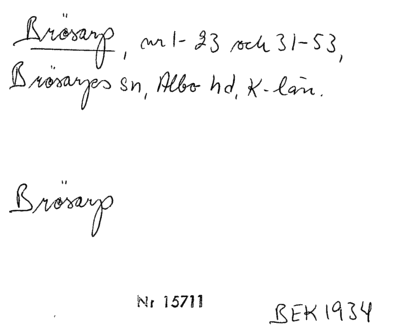 Brösarp, nr 1-23 och 31-53,
Brösarps sn, Albo hd, K-län.
Brösarp
Nr 15711
BEK 1934